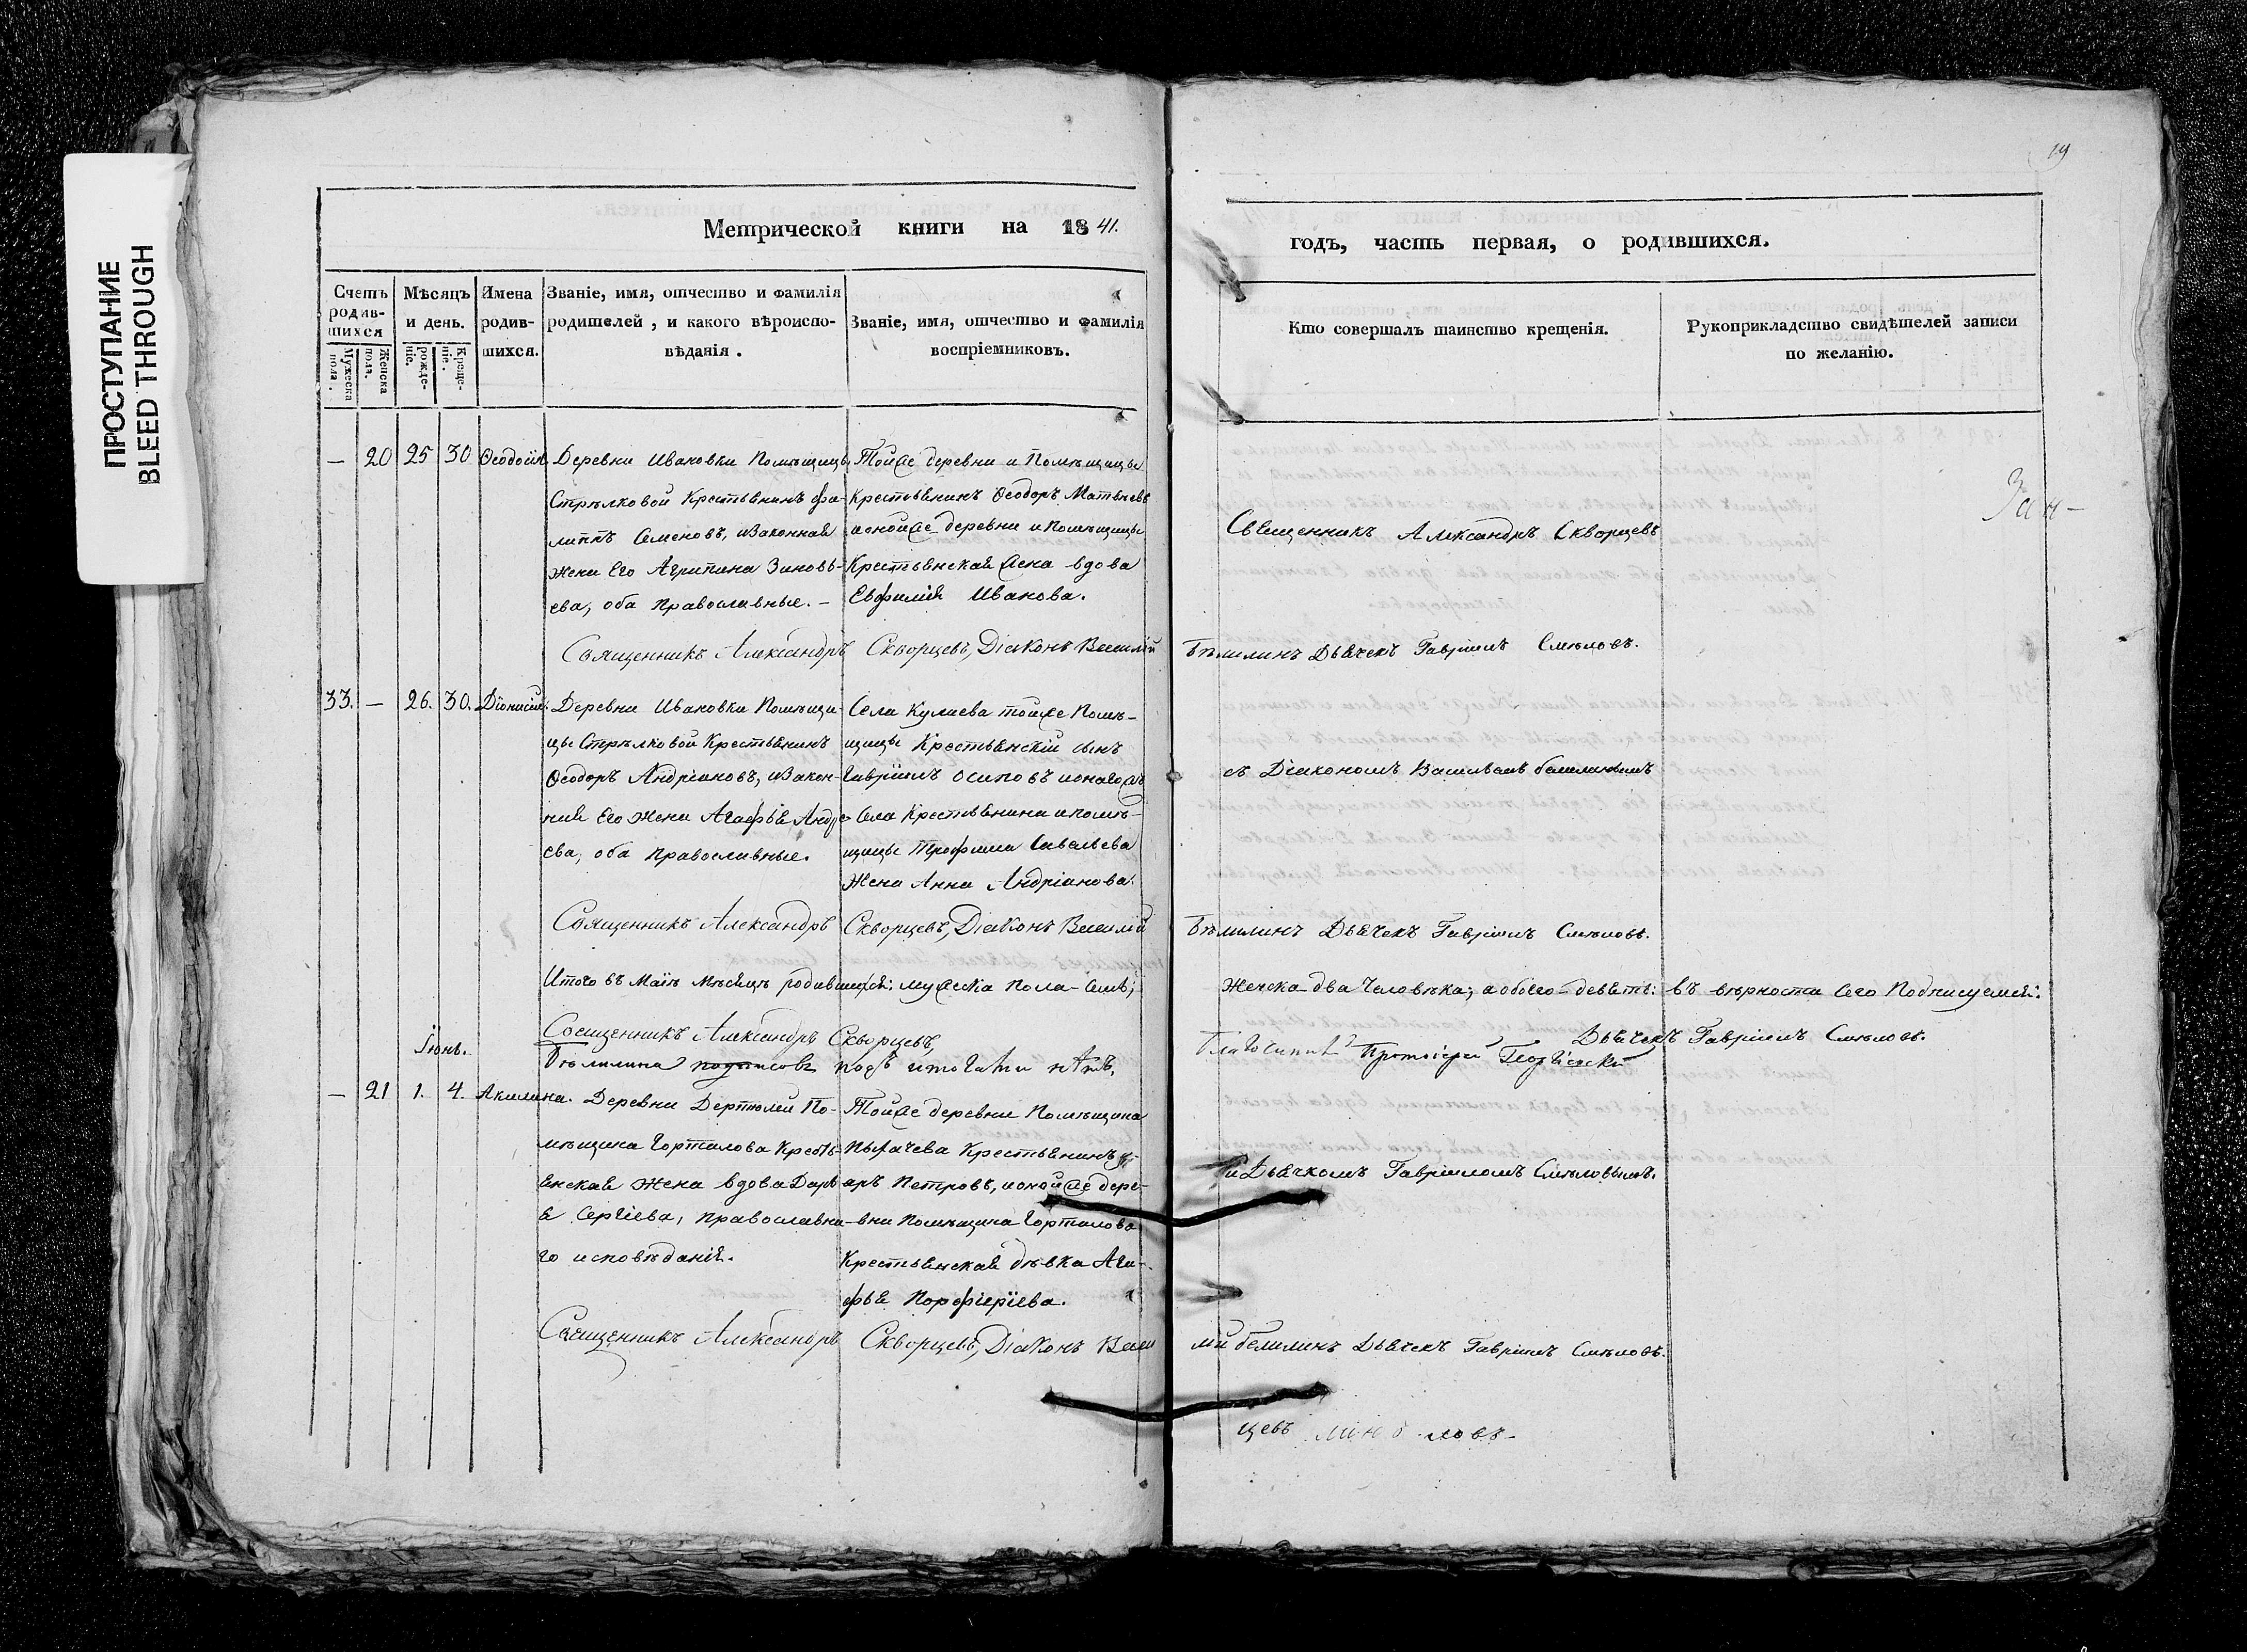 ПРОСТУПАНИЕ
BLEED THROUGH
19
Метрической книги на 1841.
годъ, часть первая, о родившихся.
Счетъ родив-шихся
Мужеска пола.
Женска пола.
Мѣсяцъ и день.
рожде-ніе.
Креще-ніе.
Имена родив-шихся.
Званіе, имя, отчество и фамилія
родителей, и какого вѣроиспо-
вѣданія.
Званіе, имя, отчество и фамилія
воспріемниковъ.
Кто совершалъ таинство крещенія.
Рукоприкладство свидѣтелей записи
по желанію.
— 20 25 30 Ѳеодосія
Деревни Ивановки Помѣщицы
Стрѣлковой Крестьянинъ Фи-
липпъ Семеновъ, и Законная
жена Его Агрипина Зиновь-
ева, оба православные. —
Тойже деревни и Помѣщицы
Крестьянинъ Ѳеодоръ Матвѣевъ
и онойже деревни и Помѣщицы
Крестьянская жена вдова
Евфимія Иванова.
Священникъ Александръ Скворцевъ
Зап-
Священникъ Александръ Скворцевъ, Діаконъ Василій Бѣлилинъ Дьячекъ Гавріилъ Смѣловъ.
33. — 26. 30. Діонисій.
Деревни Ивановки Помѣщи-
цы Стрѣлковой Крестьянинъ
Ѳеодоръ Андріановъ, и Закон-
ная Его жена Агафья Андре-
ева, оба православные.
Села Кулаева тойже Помѣ-
щицы Крестьянскій сынъ
Гавріилъ Осиповъ и онагожъ
Села Крестьянина и помѣ-
щицы Трофима Савельева
Жена Анна Андріанова.
съ Діакономъ Василіемъ Белилинымъ
Священникъ Александръ Скворцевъ, Діаконъ Василій Бѣлилинъ Дьячекъ Гавріилъ Смѣловъ.
Итого въ Маіѣ мѣсяцѣ родившихся: мужеска пола - семь; Женска два человѣка; а обоего - девять: въ вѣрности сего Подписуемся:
Священникъ Александръ Скворцевъ,
Дьячекъ Гавріилъ Смѣловъ.
Іюнь.
Бѣлилина подписовъ подъ итогами нѣтъ.
Благочинный Протоіерей Георгіевскій
— 21 1. 4. Акилина.
Деревни Дертюлей По-
мѣщика Гортолова Кресть-
янская жена вдова Дарь-
я Сергіева, православна-
го исповѣданія.
Тойже деревни Помѣщика
Пыхачева Крестьянинъ
аръ Петровъ, и онойже дере-
вни Помѣщика Гортолова
Крестьянская дѣвка Ага-
фья Порфиріева.
и Дьячкомъ Гавріиломъ Смѣловымъ.
Священникъ Александръ Скворцевъ, Діаконъ Василій Белилинъ Дьячекъ Гавріилъ Смѣловъ.
цевъ ловъ-